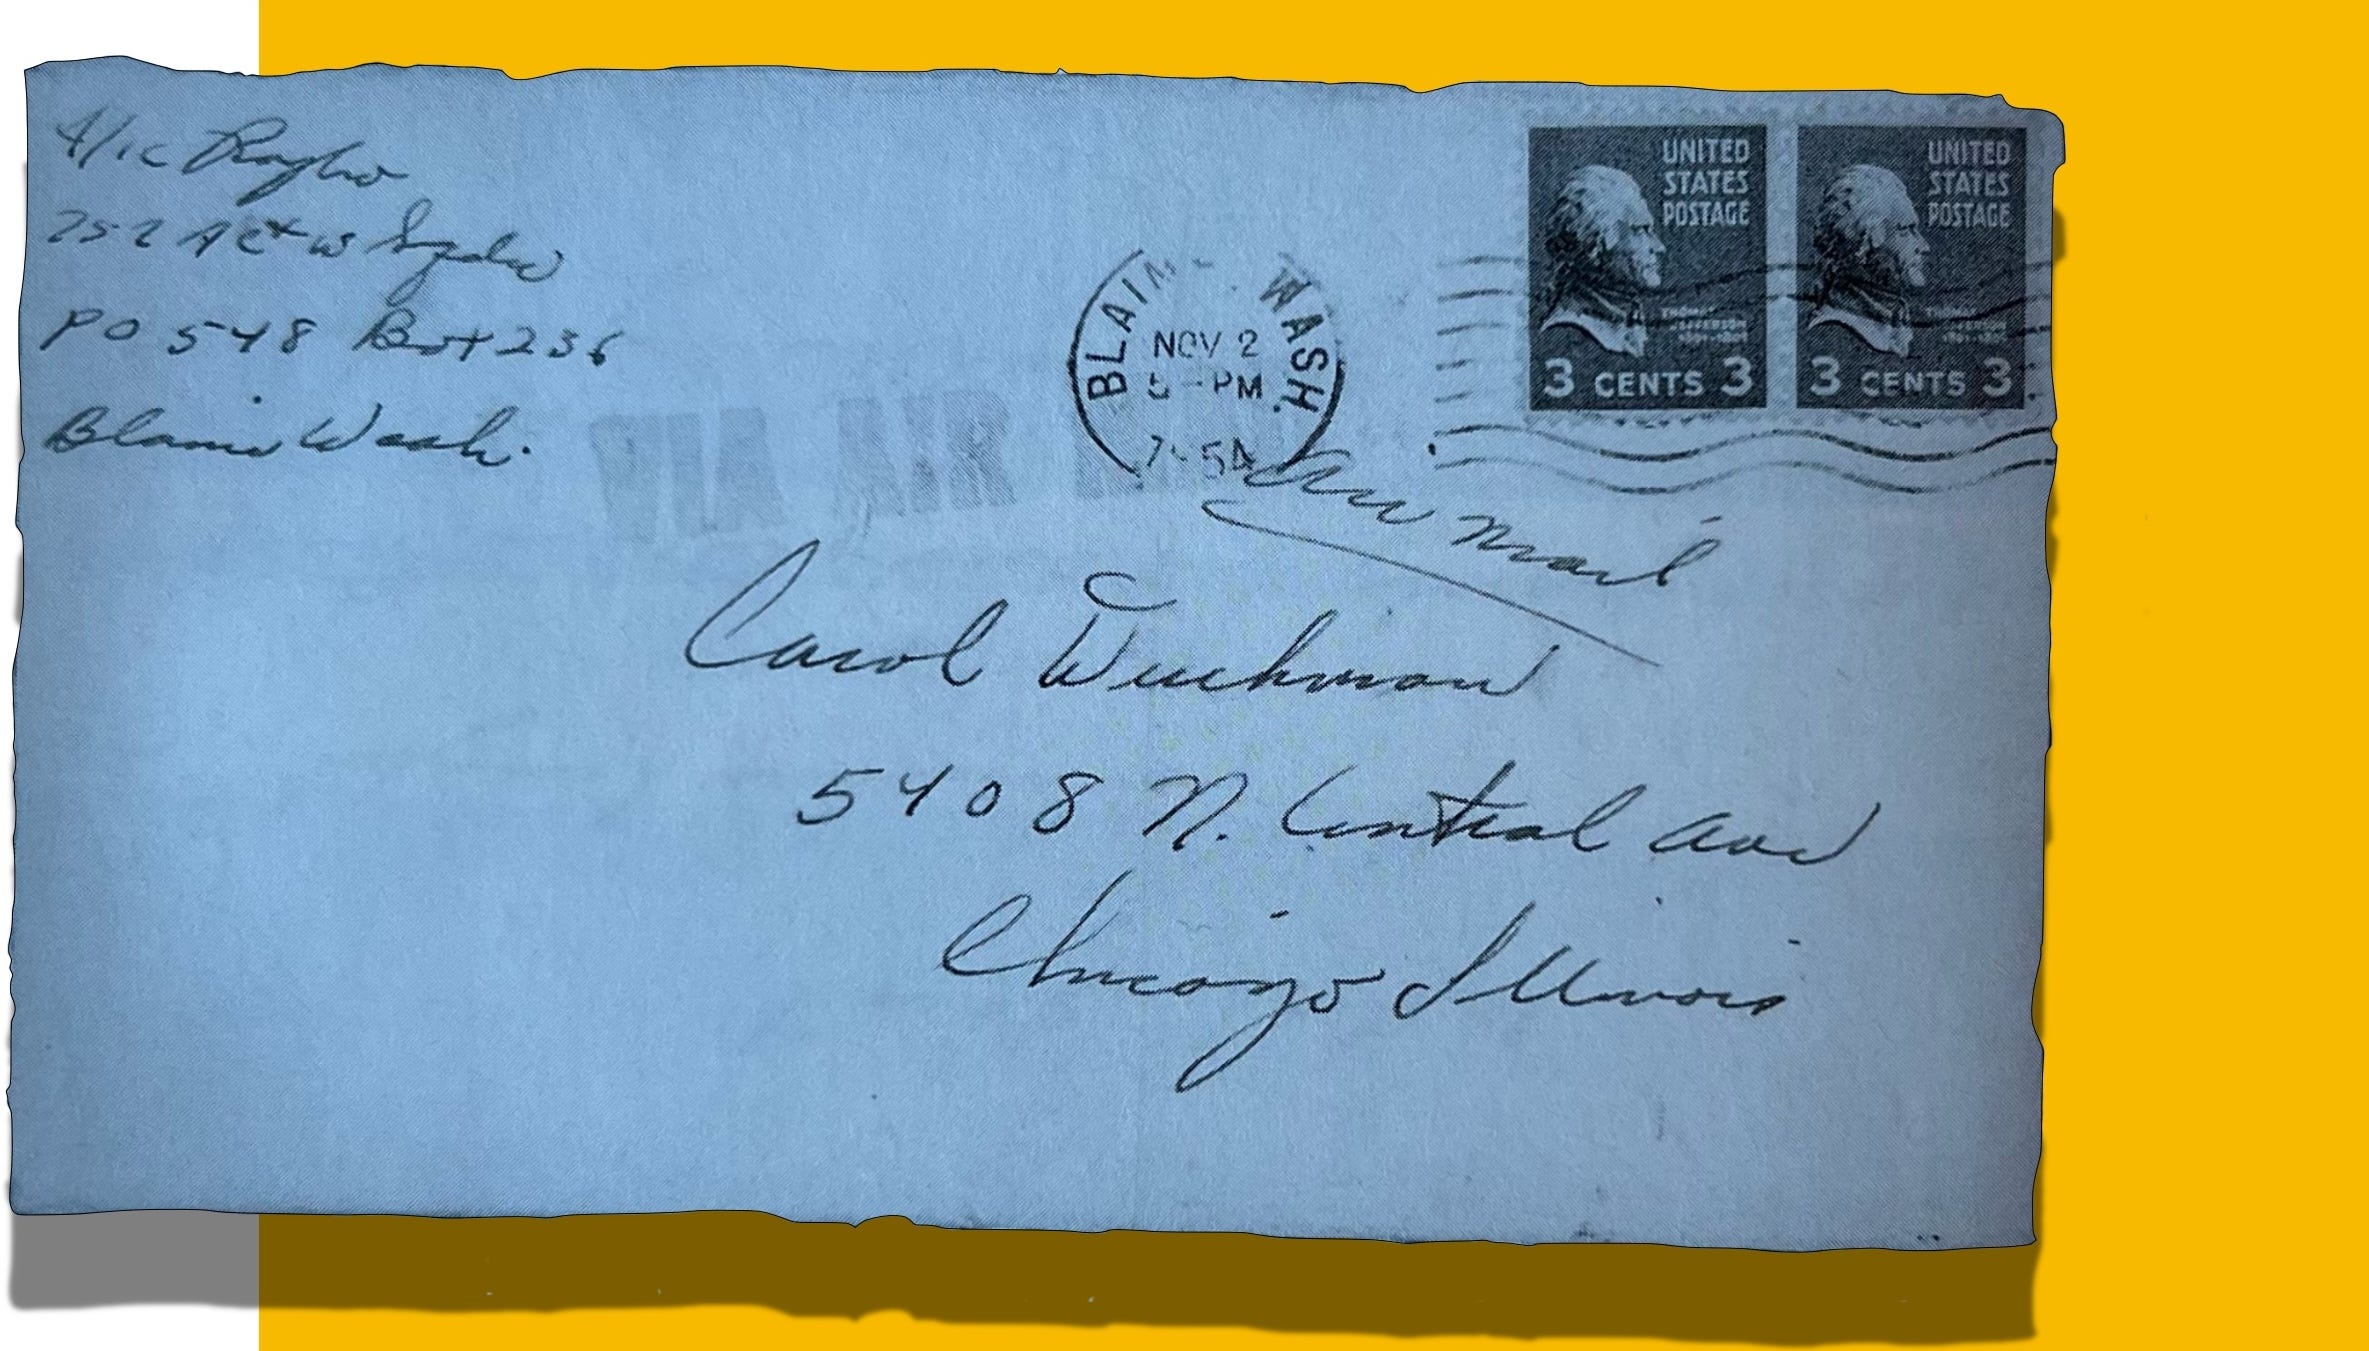 A/1c
752 AC&W
PO 548 Box 236
Blaine Wash.
VIA AIR
BLAINE WASH.
NOV 2
5 - PM
1954
UNITED
STATES
POSTAGE
THOMAS
JEFFERSON
3 CENTS 3
UNITED
STATES
POSTAGE
JEFFERSON
3 CENTS 3
Air Mail
Carol
5408 N. Central Ave
Chicago Illinois